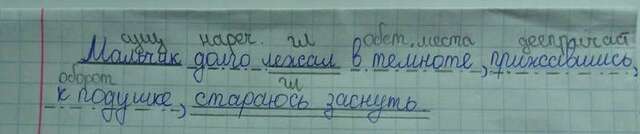 сущ нареч. гл обст. места дееприча́ст
Мальчик долго лежал в темноте, прижавшись,
оборот гл
к подушке, стараюсь заснуть